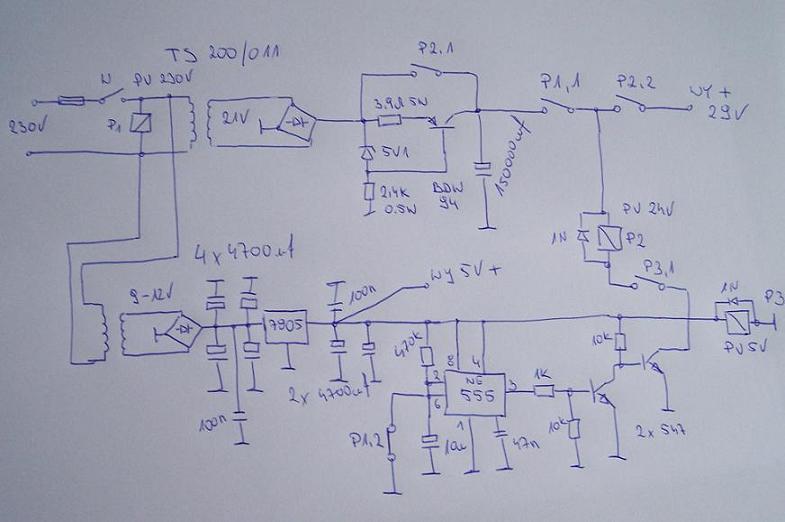 TS 200/011
P2,1
N
PU 230V
P1,1
P2,2
WY +
29V
3.9Ω 5W
230V
P1
21V
5V1
150000uf
2,4K
0.5W
BDW
94
PU 24V
1N
P2
4 x 4700uf
WY 5V +
P3,1
100n
9-12V
1N
P3
7805
PU 5V
470K
10k
8
4
2
NE
555
3
1K
6
2 x 4700uf
100n
P1,2
1
10k
2 x 547
10u
47n